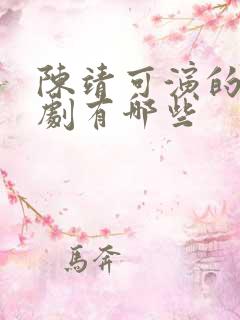 陳靖可演的
劇有哪些
馬奔